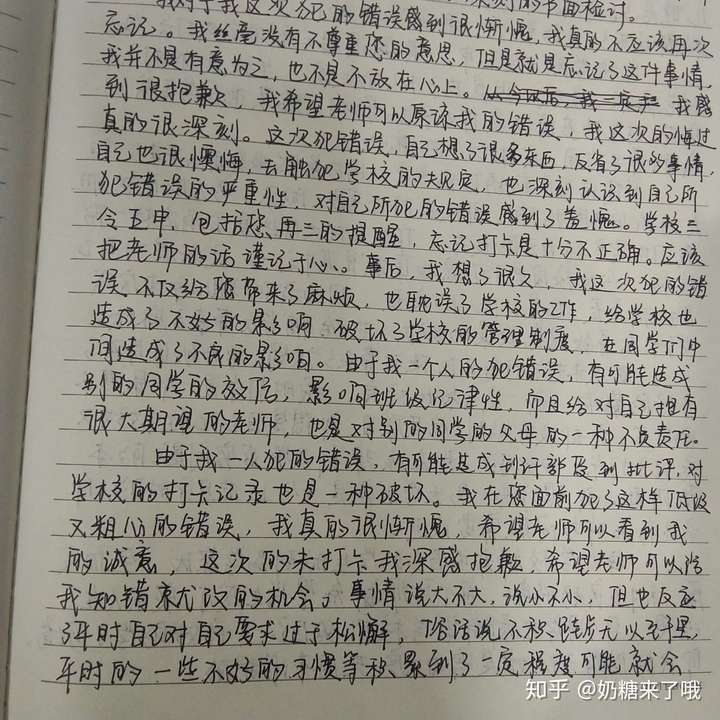 深刻的书面检讨。
我对于我这次犯的错误感到很惭愧，我真的不应该再次
忘记。我丝毫没有不尊重您的意思，但是就是忘记了这件事情，
我并不是有意为之，也不是不放在心上。从今以后，我一定 我感
到很抱歉，我希望老师可以原谅我的错误，我这次的悔过
真的很深刻。这次犯错误，自己想了很多东西，反省了很多事情，
自己也很懊悔，去触犯学校的规定，也深刻认识到自己所
犯错误的严重性，对自己所犯的错误感到了羞愧。学校三
令五申，包括您再三的提醒，忘记打卡是十分不正确。应该
把老师的话谨记于心。事后，我想了很久，我这次犯的错
误不仅给您带来了麻烦，也耽误了学校的工作，给学校也
造成了不好的影响，破坏了学校的管理制度，在同学们中
间造成了不良的影响。由于我一个人的犯错误，有可能造成
别的同学的效仿，影响班级纪律性，而且给对自己抱有
很大期望的老师，也是对别的同学的父母的一种不负责任。
由于我一人犯的错误，有可能造成 部受到批评，对
学校的打卡记录也是一种破坏。我在您面前犯了这样低级
又粗心的错误，我真的很惭愧，希望老师可以看到我
的诚意，这次的未打卡我深感抱歉，希望老师可以给
我知错就改的机会。事情说大不大，说小不小，但也反应
了平时自己对自己要求过于松懈，俗话说不积跬步无以至千里，
平时的一些不好的习惯等积累到了一定程度可能就会
知乎 @奶糖来了哦